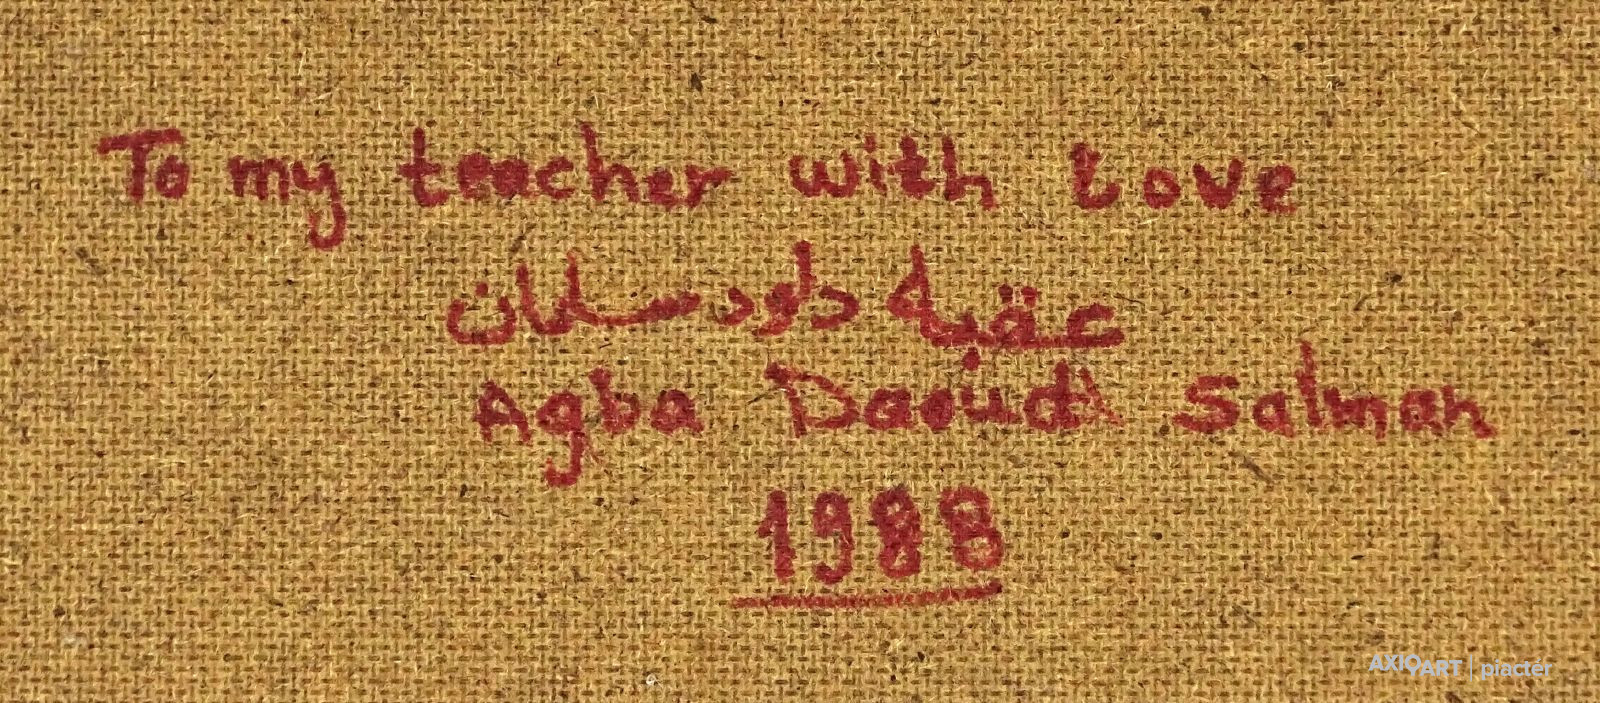 To my teacher with Love
عقبه داود سلمان
Agba Daoud Salman
1988
AXIOART | piactér